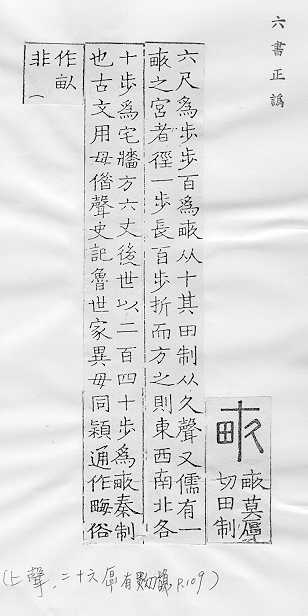 六書正譌
畞莫厚
切田制
六尺爲步步百爲畞从十其田制从久聲又儒有一
畞之宮者徑一步長百步折而方之則東西南北各
十步爲宅牆方六丈後世以二百四十步爲畞秦制
也古文用毋偕聲史記魯世家異毋同穎通作畮俗
作畝
非
(上聲.二十六厚有 P.109)